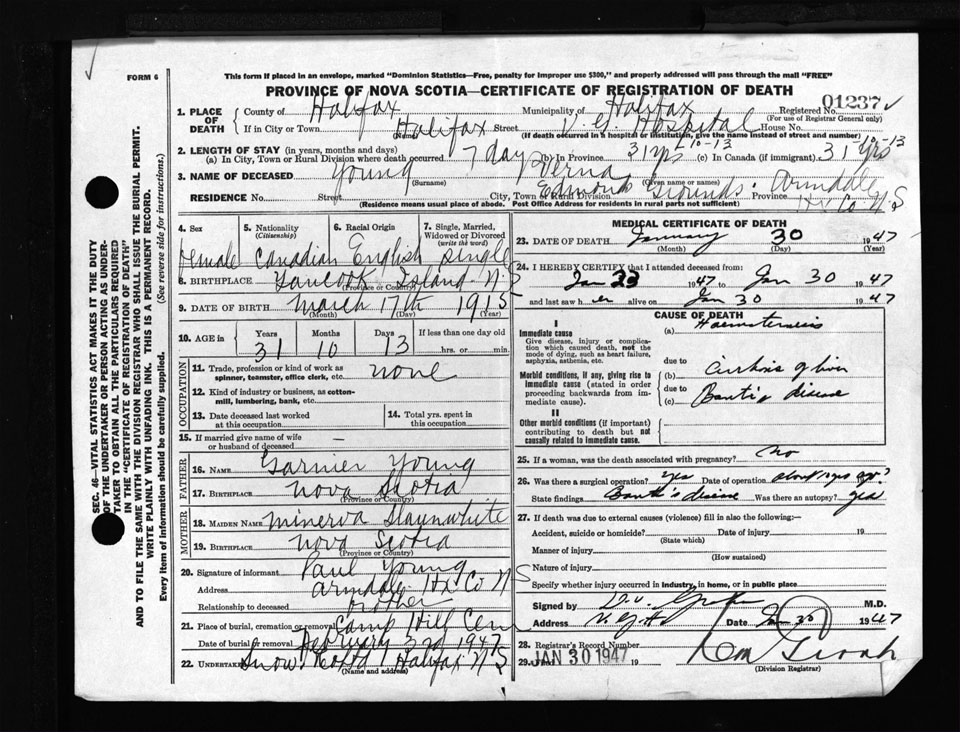 FORM 6
This form if placed in an envelope, marked "Dominion Statistics—Free, penalty for improper use $300," and properly addressed will pass through the mail "FREE"
PROVINCE OF NOVA SCOTIA—CERTIFICATE OF REGISTRATION OF DEATH
01237
1. PLACE OF DEATH County of Halifax Municipality of Halifax Registered No. (For use of Registrar General only)
If in City or Town Halifax Street V. G. Hospital House No.
(Name) (If death occurred in a hospital or institution, give the name instead of street and number)
2. LENGTH OF STAY (in years, months and days)
(a) In City, Town or Rural Division where death occurred 7 days (b) In Province 31 yrs-10-13 (c) In Canada (if immigrant) 31 yrs 10-13
3. NAME OF DECEASED Young Verna
(Surname) (Given name or names)
RESIDENCE No. Street City, Town or Rural Division Edmonds Grounds Province Armdale Hx Co. N S
(Residence means usual place of abode. Post Office Address for residents in rural parts not sufficient)
4. Sex 5. Nationality (Citizenship) 6. Racial Origin 7. Single, Married, Widowed or Divorced (write the word)
female Canadian English single
8. BIRTHPLACE Tancook Island N S
(Province or Country)
9. DATE OF BIRTH March 17th 1915
(Month) (Day) (Year)
10. AGE in Years Months Days If less than one day old
31 10 13 hrs. or min.
OCCUPATION
11. Trade, profession or kind of work as spinner, teamster, office clerk, etc. none
12. Kind of industry or business, as cotton-mill, lumbering, bank, etc.
13. Date deceased last worked at this occupation
14. Total yrs. spent in this occupation
15. If married give name of wife or husband of deceased —
FATHER
16. NAME Garnier Young
17. BIRTHPLACE Nova Scotia
(Province or Country)
MOTHER
18. MAIDEN NAME Minerva Slaunwhite
19. BIRTHPLACE Nova Scotia
(Province or Country)
20. Signature of informant Paul Young
Address Armdale Hx Co N S
Relationship to deceased brother
21. Place of burial, cremation or removal Camp Hill Cem
Date of burial or removal February 3rd 1947
22. Undertaker Snow Halifax N S
(Name and address)
MEDICAL CERTIFICATE OF DEATH
23. DATE OF DEATH January 30 1947
(Month) (Day) (Year)
24. I HEREBY CERTIFY that I attended deceased from:
Jan 23 1947 to Jan 30 1947
and last saw her alive on Jan 30 1947
CAUSE OF DEATH
I
Immediate cause (a) Haematemesis
Give disease, injury or complication which caused death, not the mode of dying, such as heart failure, asphyxia, asthenia, etc.
due to
Morbid conditions, if any, giving rise to immediate cause (stated in order proceeding backwards from immediate cause).
(b) Cirrhosis of liver
due to
(c) Banti's disease
II
Other morbid conditions (if important) contributing to death but not causally related to immediate cause.
25. If a woman, was the death associated with pregnancy? No
26. Was there a surgical operation? Yes Date of operation
State findings Banti's disease Was there an autopsy? Yes
27. If death was due to external causes (violence) fill in also the following:—
Accident, suicide or homicide? Date of injury 19
(State which)
Manner of injury
(How sustained)
Nature of injury
Specify whether injury occurred in industry, in home, or in public place
Signed by M.D.
Address V. G. H. Date Jan 30 1947
28. Registrar's Record Number
29. Filed JAN 30 1947 19
(Division Registrar)
SEC. 46—VITAL STATISTICS ACT MAKES IT THE DUTY
OF THE UNDERTAKER OR PERSON ACTING AS UNDER-
TAKER TO OBTAIN ALL THE PARTICULARS REQUIRED
IN THE "CERTIFICATE OF REGISTRATION OF DEATH"
AND TO FILE THE SAME WITH THE DIVISION REGISTRAR WHO SHALL ISSUE THE BURIAL PERMIT.
WRITE PLAINLY WITH UNFADING INK. THIS IS A PERMANENT RECORD.
Every item of information should be carefully supplied. (See reverse side for instructions.)